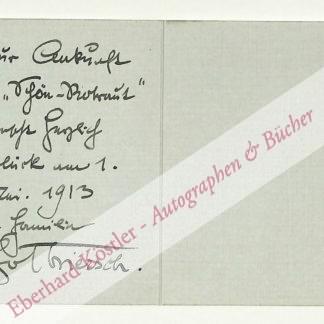 ur Ankunft
„Schön-Rotraut"
scht herzlich
lück am 1.
ai. 1913
Familie
Eberhard Köstler - Autographen & Bücher